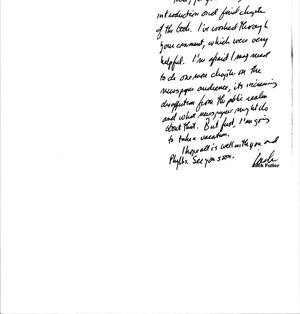 introduction and final chapter
of the book. I've worked through
your comments, which were very
helpful. I'm afraid I may need
to do one more chapter on the
newspaper audience, its increasing
disaffection from the public realm
and what newspapers might do
about that. But first, I'm going
to take a vacation.
I hope all is well with you and
Phyllis. See you soon.
Jack
Jack Fuller